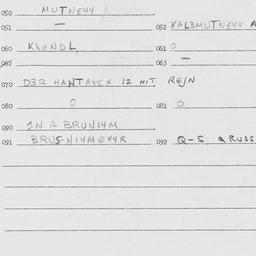 050 MUTNEYY
051 — 052 VAL3MUTNEYY A
060 KEENDL, 061 0
062 063 —
070 D3R HANTAYSX 12 HIT REJN
080 0 081 0
090 2N R BRUN14M
091 BRUS-N14MEYYR 092 Q-S QRUSS